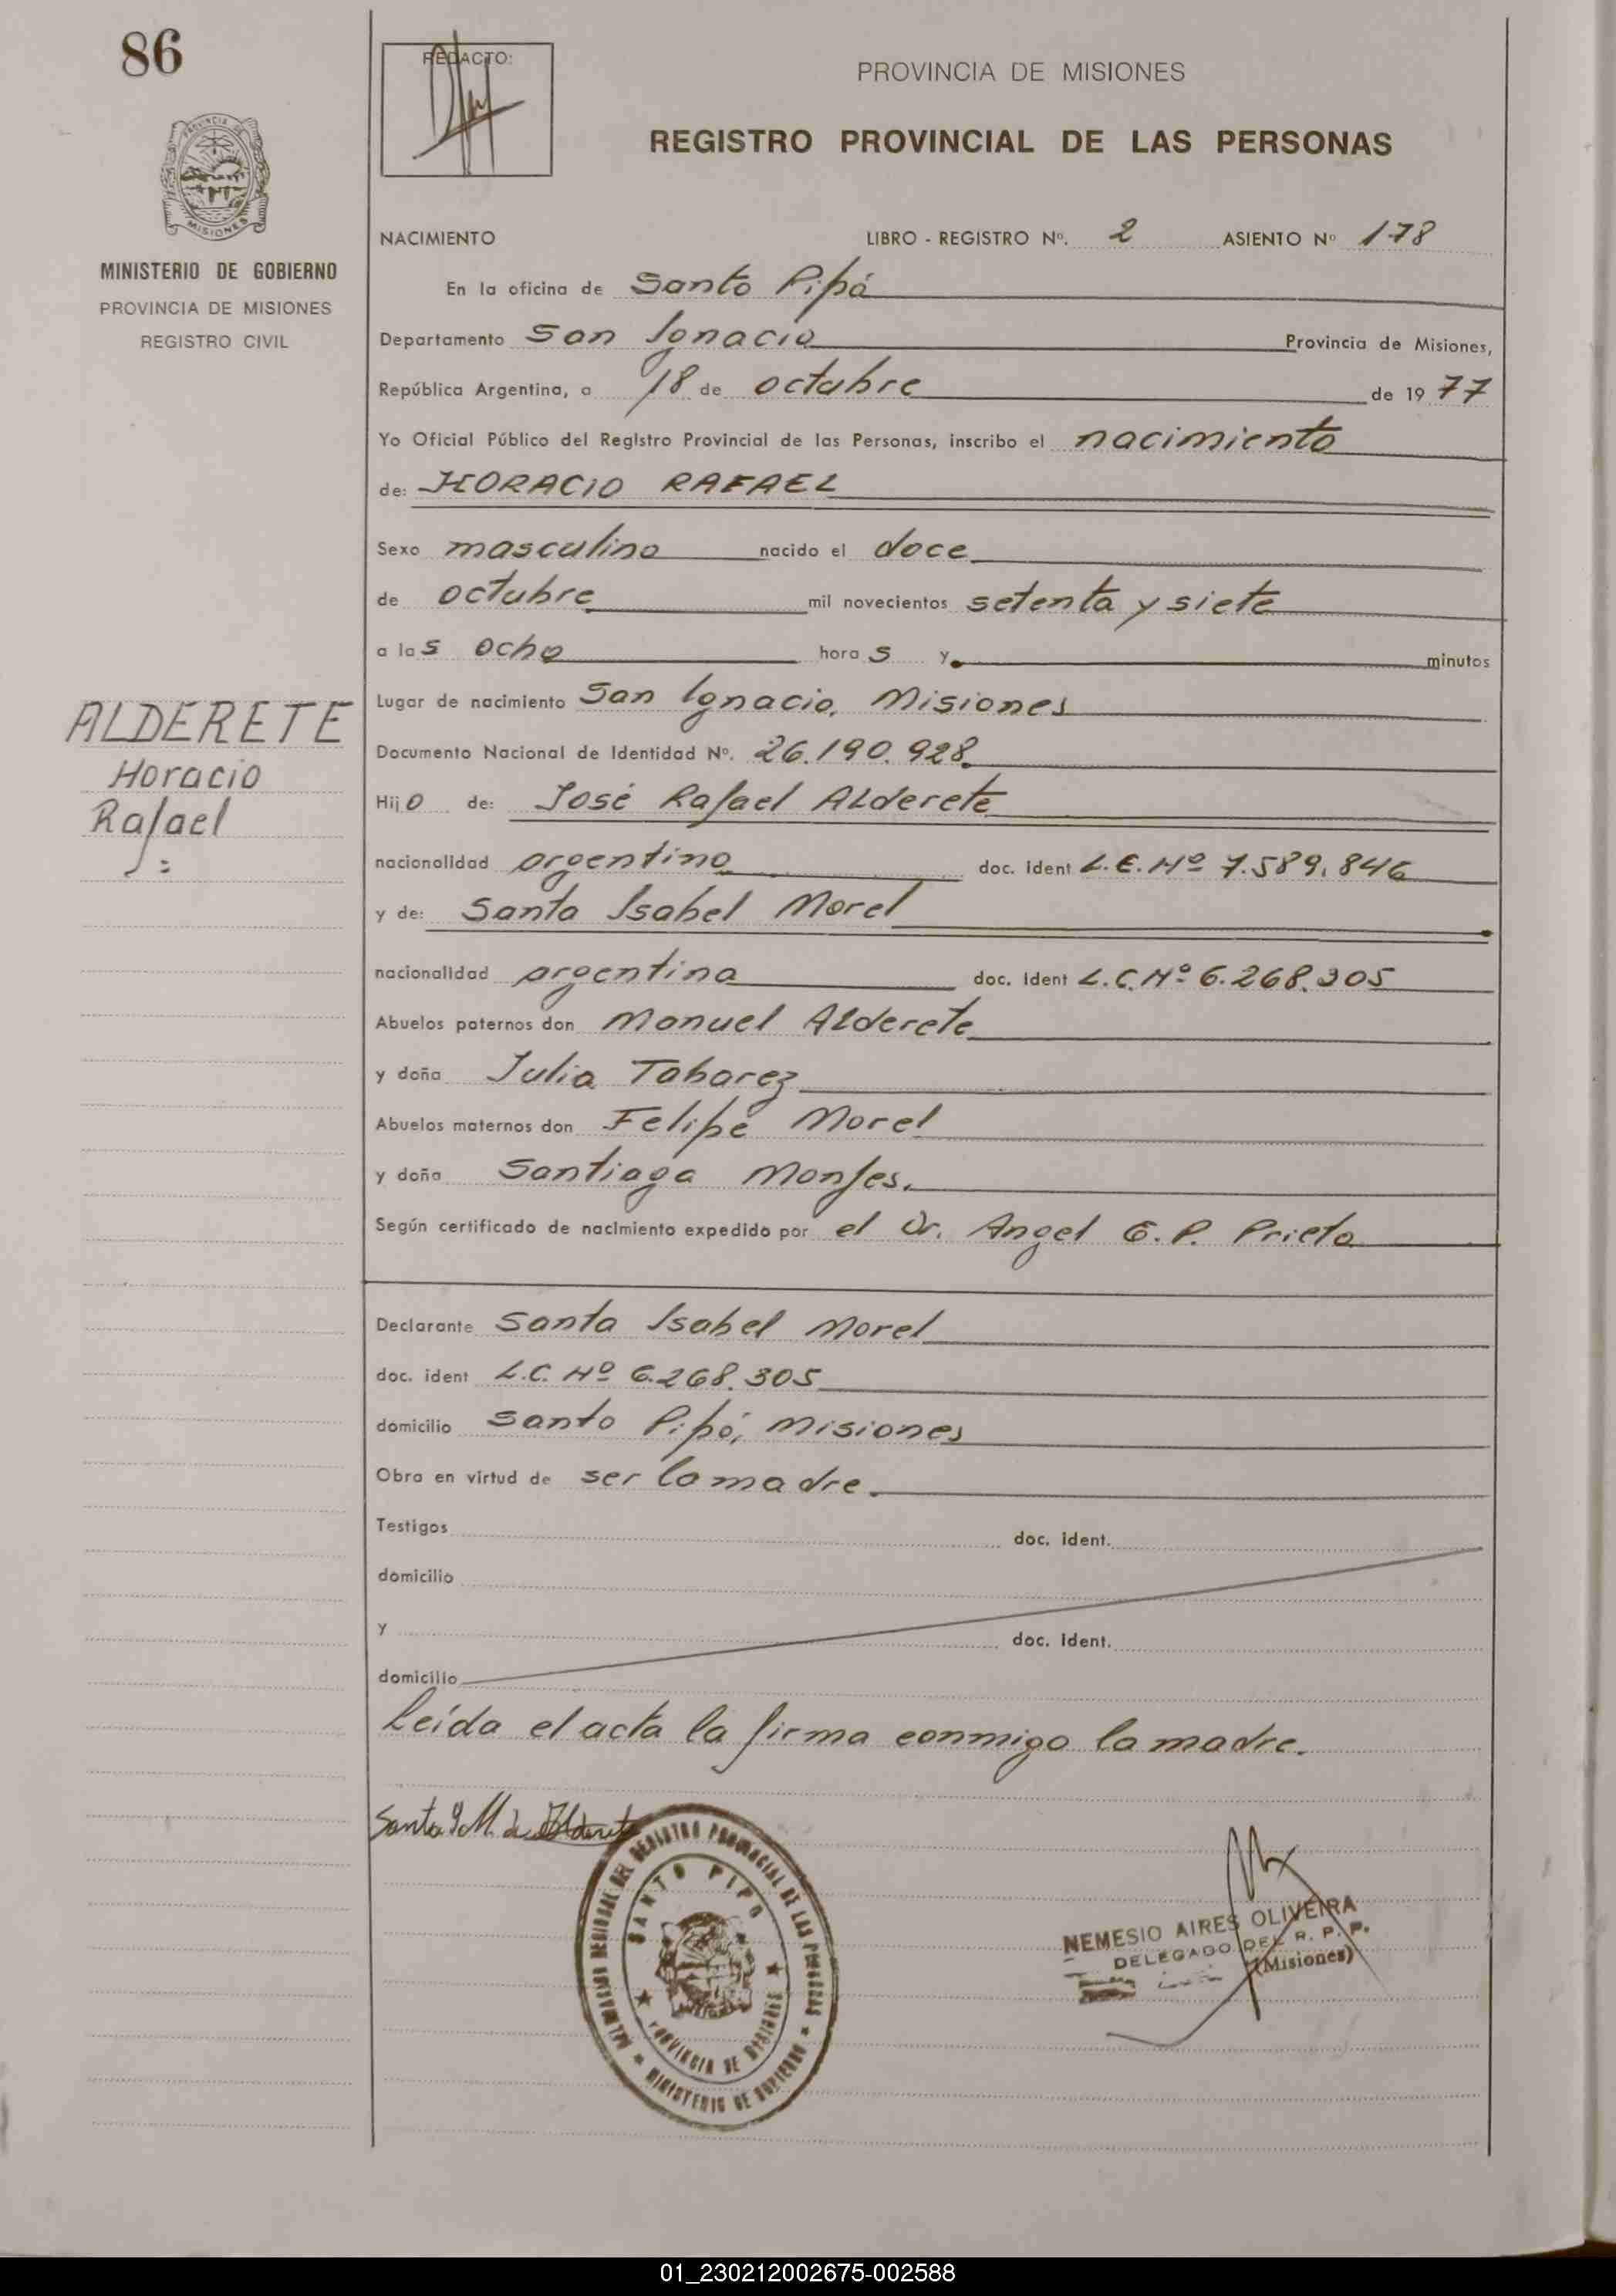 86
REDACTO:
PROVINCIA DE MISIONES
REGISTRO PROVINCIAL DE LAS PERSONAS
PROVINCIA DE
MISIONES
MINISTERIO DE GOBIERNO
PROVINCIA DE MISIONES
REGISTRO CIVIL
NACIMIENTO LIBRO - REGISTRO Nº. 2 ASIENTO Nº 178
En la oficina de Santo Pipó
Departamento San Ignacio Provincia de Misiones,
República Argentina, a 18 de octubre de 1977
Yo Oficial Público del Registro Provincial de las Personas, inscribo el nacimiento
de: HORACIO RAFAEL
Sexo masculino nacido el doce
de octubre mil novecientos setenta y siete
a las ocho horas y minutos
Lugar de nacimiento San Ignacio, Misiones
ALDERETE
Horacio
Rafael
Documento Nacional de Identidad Nº. 26.190.928
Hijo de: José Rafael Alderete
nacionalidad argentino doc. ident L.E. Nº 7.589.846
y de: Santa Isabel Morel
nacionalidad argentina doc. ident L.C. Nº 6.268.305
Abuelos paternos don Manuel Alderete
y doña Julia Tabarez
Abuelos maternos don Felipe Morel
y doña Santiaga Monjes.
Según certificado de nacimiento expedido por el Dr. Angel E. P. Prieto
Declarante Santa Isabel Morel
doc. ident L.C. Nº 6.268.305
domicilio Santo Pipó, Misiones
Obra en virtud de ser la madre.
Testigos doc. ident.
domicilio
y doc. ident.
domicilio
Leída el acta la firma conmigo la madre.
Santa I M. de Alderete
DELEGACION REGIONAL DEL REGISTRO PROVINCIAL DE LAS PERSONAS
SANTO PIPO
PROVINCIA DE MISIONES
MINISTERIO DE GOBIERNO
NEMESIO AIRES OLIVEIRA
DELEGADO DEL R. P. P.
(Misiones)
01_230212002675-002588